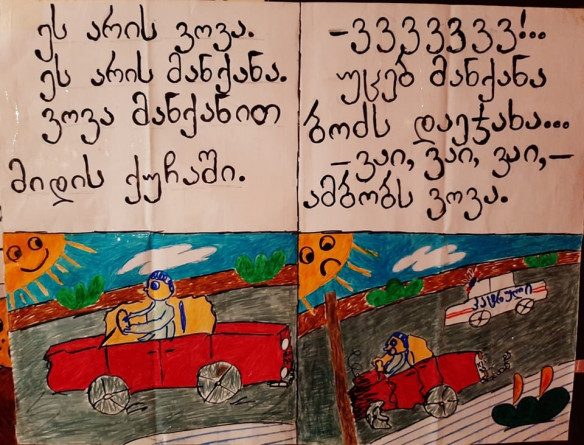 ეს არის ვოვა.
ეს არის მანქანა.
ვოვა მანქანით
მიდის ქუჩაში.
–ვვვვვვვ!..
უცებ მანქანა
ბოძს დაეჯახა...
– ვაი, ვაი, ვაი, –
ამბობს ვოვა.
პატრული